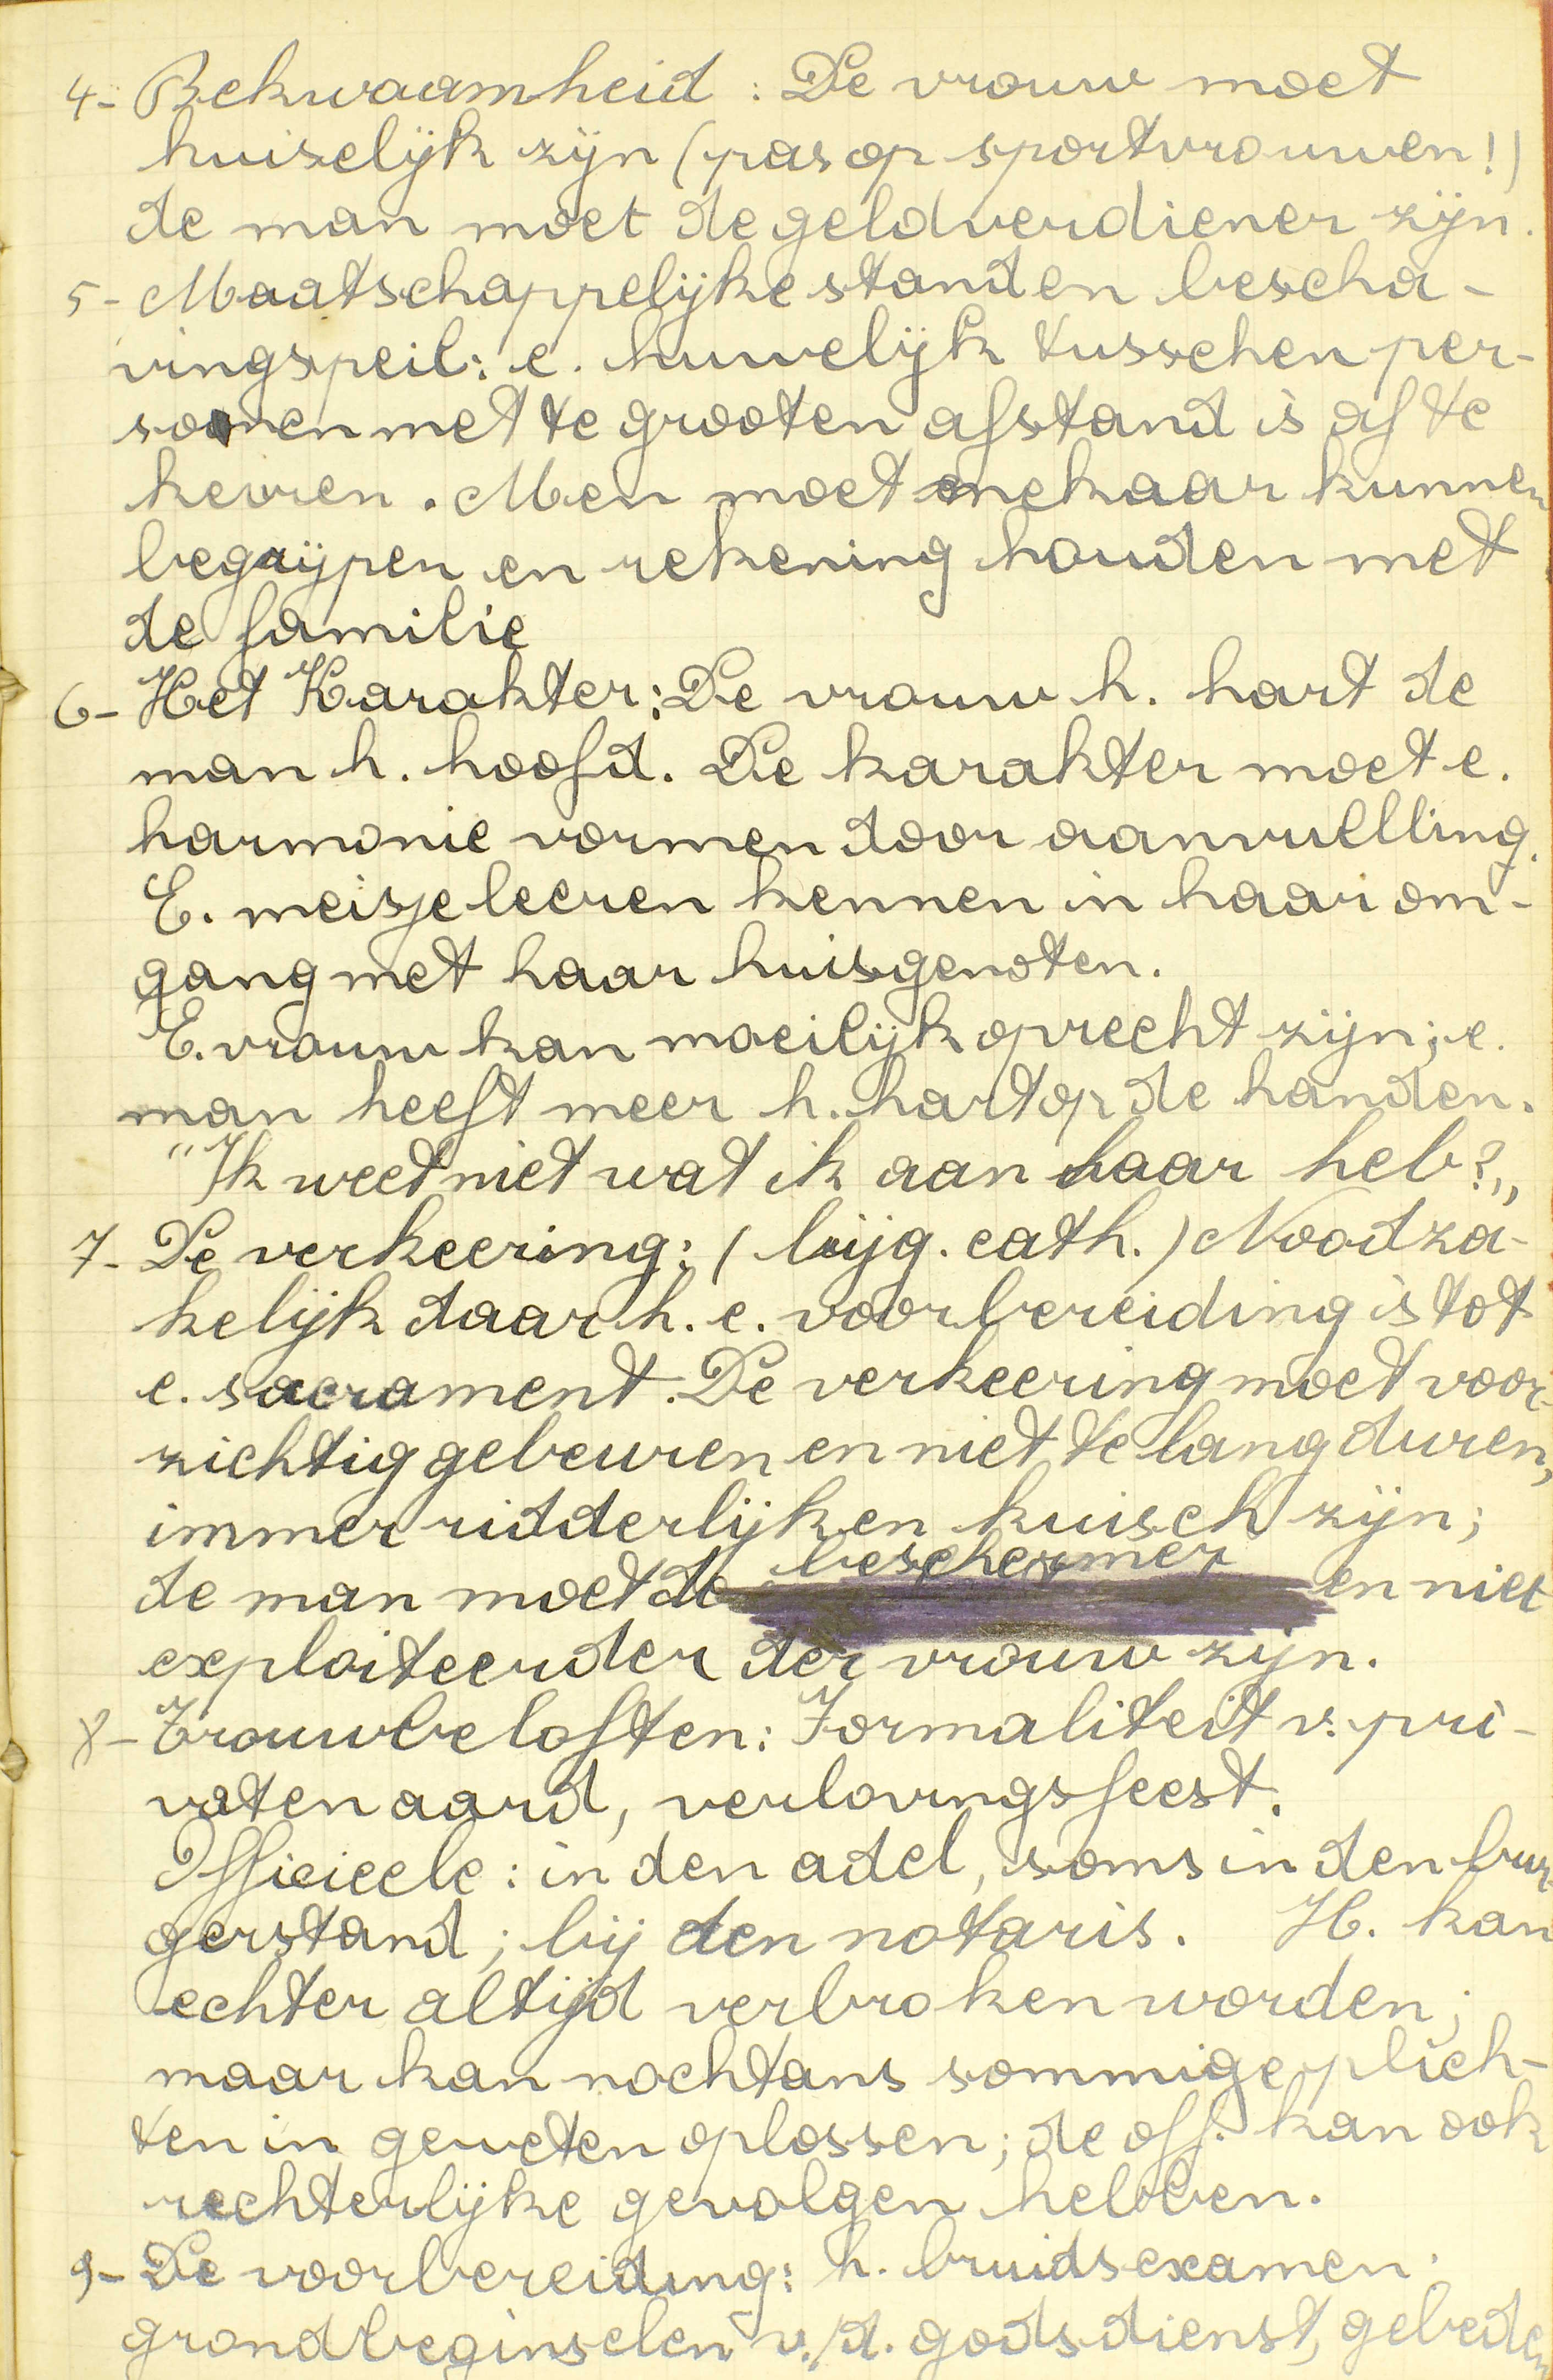 4- Bekwaamheid : De vrouw moet
huiselijk zijn (pas op sportvrouwen!)
de man moet de geldverdiener zijn.
5- Maatschappelijke stand en bescha-
vingspeil: e. huwelijk tusschen per-
sonen met te grooten afstand is af te
keuren. Men moet mekaar kunnen
begrijpen en rekening houden met
de familie
6- Het Karakter: De vrouw h. hart de
man h. hoofd. De karakter moet e.
harmonie vormen door aanvulling.
E. meisje leeren kennen in haar om-
gang met haar huisgenoten.
E. vrouw kan moeilijk oprecht zijn; e.
man heeft meer h. hart op de handen.
"Ik weet niet wat ik aan haar heb?„
7- De verkeering: ( bijg. cath.) Noodza-
kelijk daar h. e. voorbereiding is tot
e. sacrament. De verkeering moet voor-
zichtig gebeuren en niet te lang duren,
immer ridderlijk en kuisch zijn;
de man moet de beschermer en niet
exploiteerder der vrouw zijn.
8- Trouwbeloften: Formaliteit v. pri-
vaten aard, verlovingsfeest.
Officieele: in den adel, soms in den bur-
gerstand; bij den notaris. H. kan
echter altijd verbroken worden;
maar kan nochtans sommige plich-
ten in geweten oplossen; de off. kan ook
rechterlijke gevolgen hebben.
9- De voorbereiding: h. bruidsexamen.
grondbeginselen v./d. godsdienst, gebeden